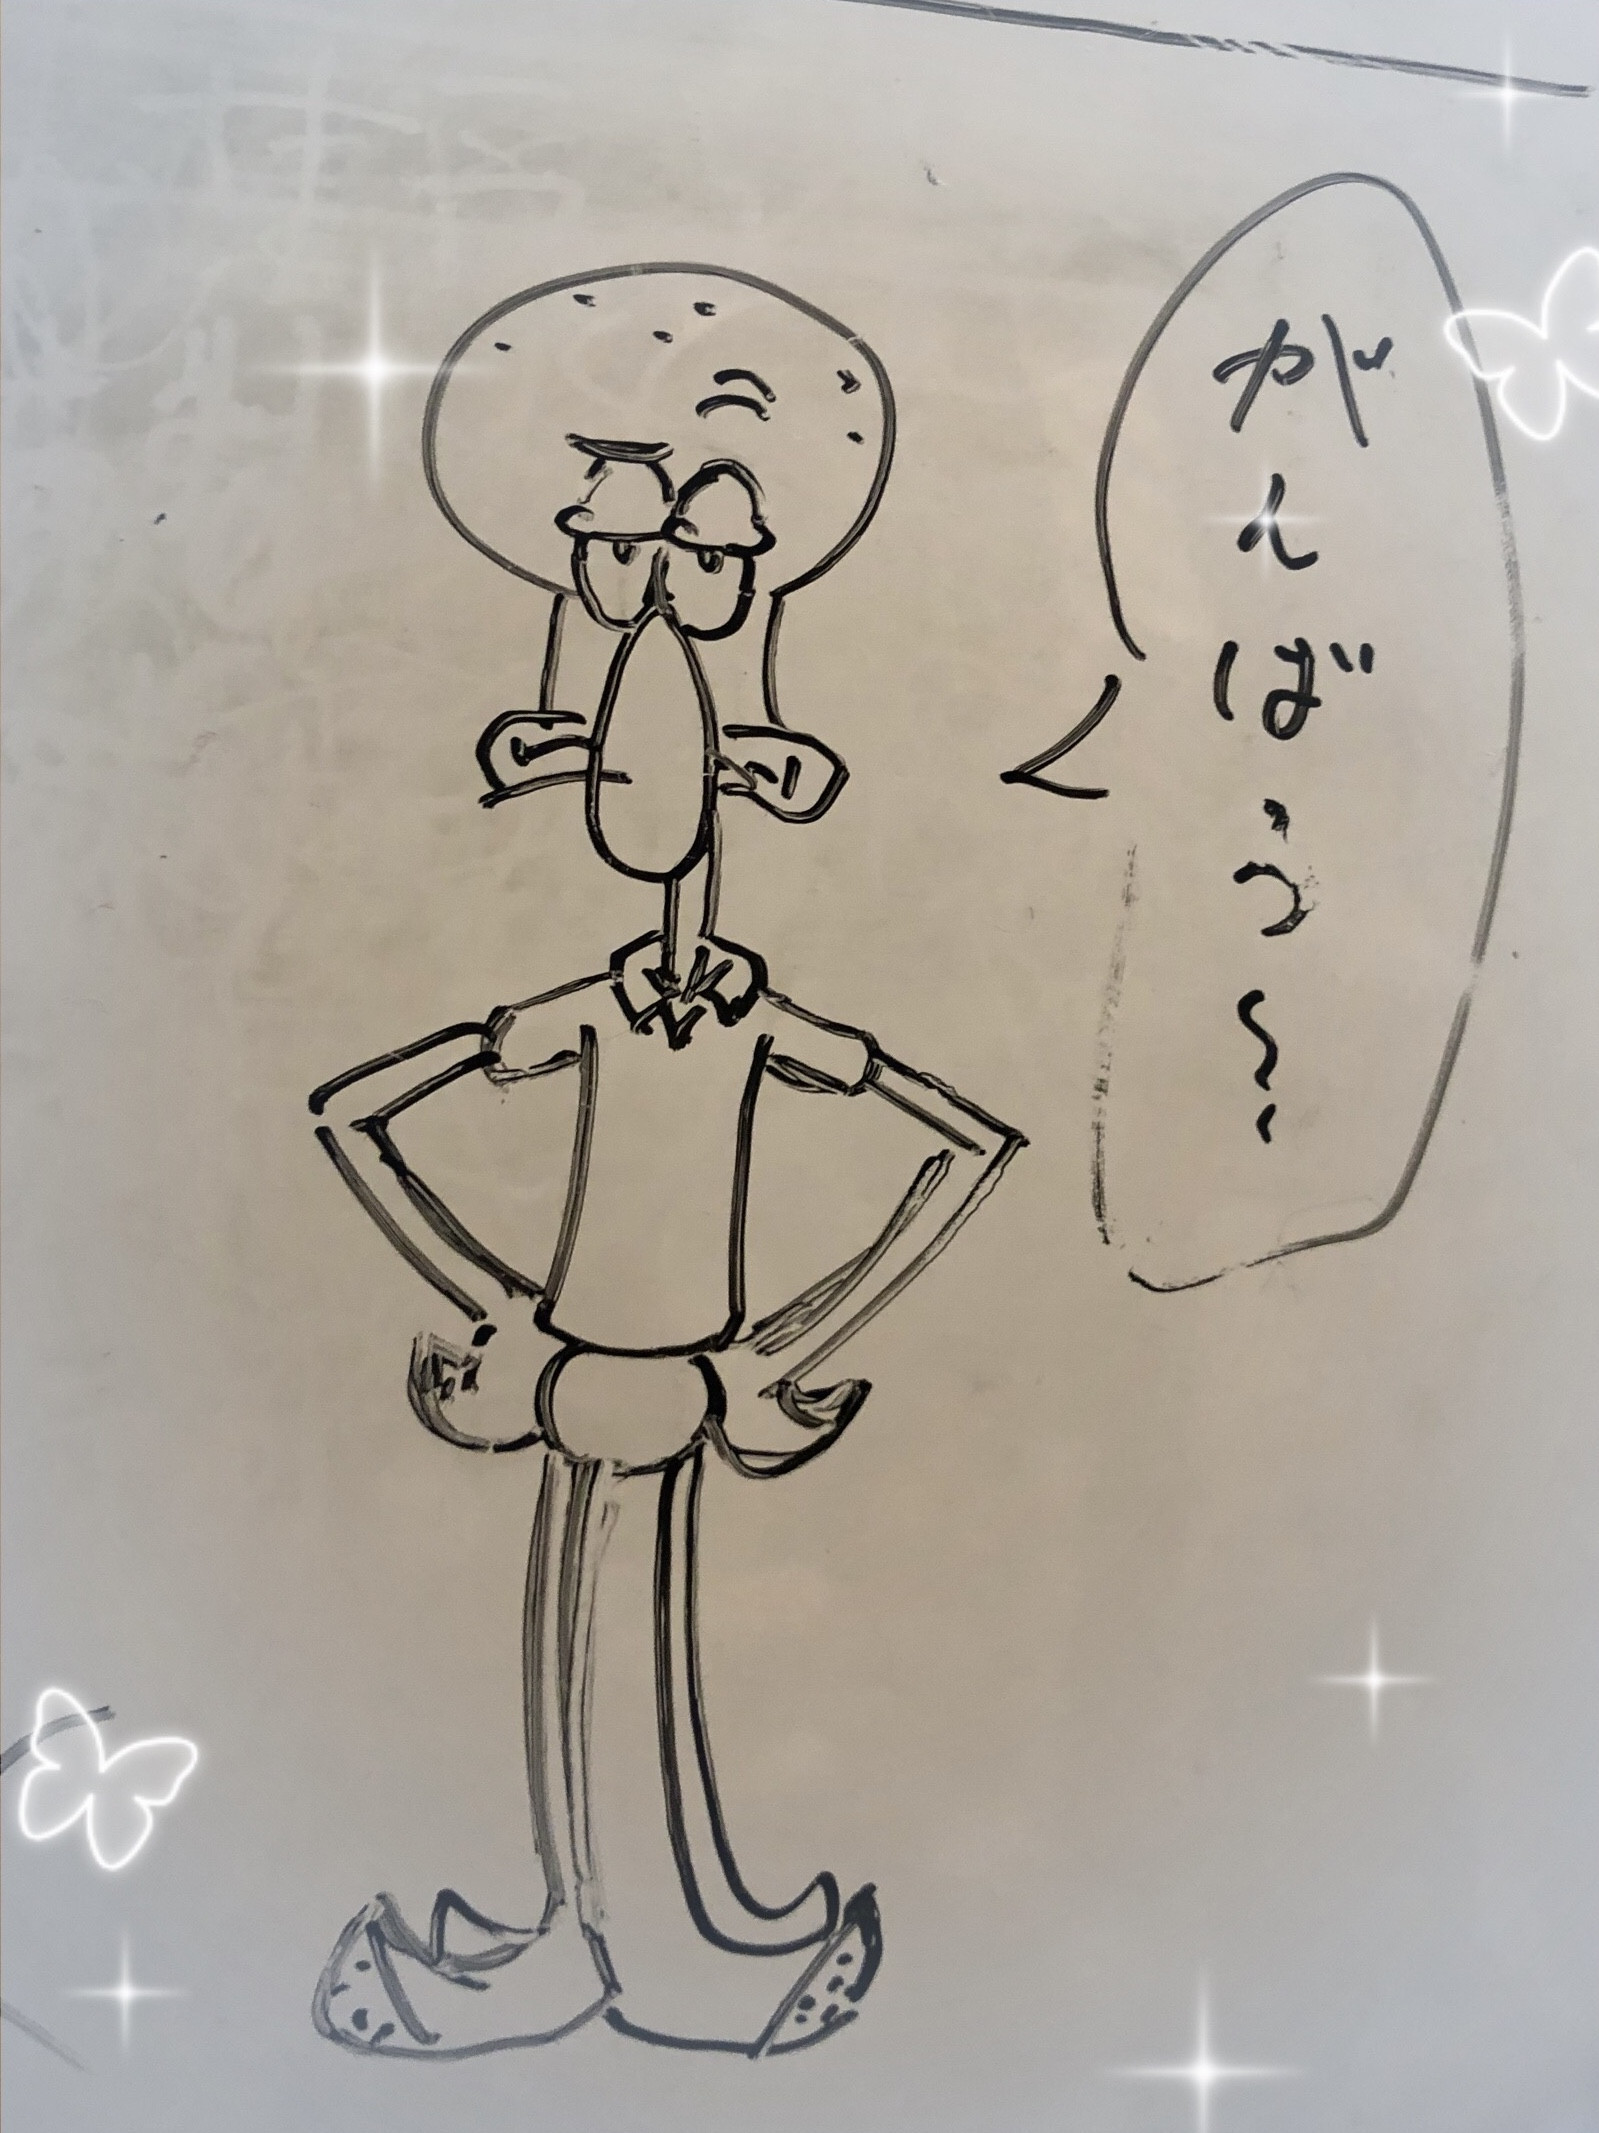 がんばう〜